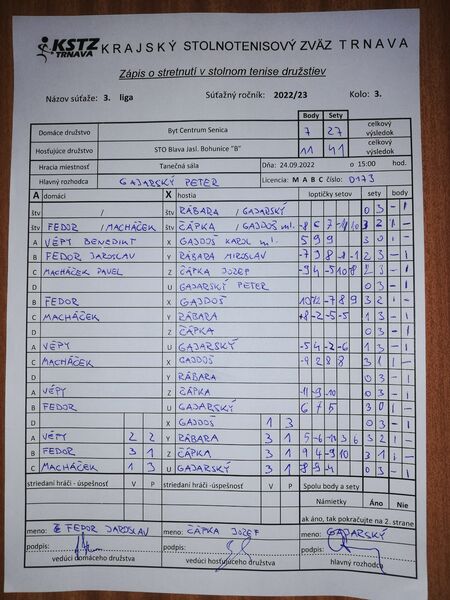 KSTZ TRNAVA KRAJSKÝ STOLNOTENISOVÝ ZVÄZ TRNAVA
Zápis o stretnutí v stolnom tenise družstiev
Názov súťaže: 3. liga Súťažný ročník: 2022/23 Kolo: 3.
Body Sety
Domáce družstvo Byt Centrum Senica 7 27 celkový výsledok
Hosťujúce družstvo STO Blava Jasl. Bohunice "B" 11 41 celkový výsledok
Hracia miestnosť Tanečná sála Dňa: 24.09.2022 o 15:00 hod.
Hlavný rozhodca GAJARSKÝ PETER Licencia: M A B C číslo: D173
A domáci X hostia loptičky setov sety body
štv štv RÁBARA / GAJARSKÝ 0 3 - 1
štv FEDOR / MACHÁČEK štv ČÁPKA / GAJDOŠ ml. 3 2 1 -
A VÉPY BENEDIKT X GAJDOŠ KAROL ml. 5 9 9 3 0 1 -
B FEDOR JAROSLAV Y RÁBARA MIROSLAV 2 3 - 1
C MACHÁČEK PAVEL Z ČÁPKA JOZEF -9 4 -5 10 -8 2 3 - 1
D U GAJARSKÝ PETER 0 3 - 1
B FEDOR X GAJDOŠ 10 12 -7 8 9 3 2 1 -
C MACHÁČEK Y RÁBARA 8 -2 -5 -5 1 3 - 1
D Z ČÁPKA 0 3 - 1
A VÉPY U GAJARSKÝ -5 4 -2 -6 1 3 - 1
C MACHÁČEK X GAJDOŠ -9 2 8 8 3 1 1 -
D Y RÁBARA 0 3 - 1
A VÉPY Z ČÁPKA -11 -9 -10 0 3 - 1
B FEDOR U GAJARSKÝ 6 7 5 3 0 1 -
D X GAJDOŠ 1 3 0 3 - 1
A VÉPY 2 2 Y RÁBARA 3 1 5 -6 -10 3 6 3 2 1 -
B FEDOR 3 1 Z ČÁPKA 3 1 9 4 -9 10 3 1 1 -
C MACHÁČEK 1 3 U GAJARSKÝ 3 1 -8 -9 -4 0 3 - 1
striedaní hráči - úspešnosť V P striedaní hráči - úspešnosť V P Spolu body a sety
Námietky Áno Nie
ak áno, tak pokračujte na 2. strane
meno: FEDOR JAROSLAV meno: ČÁPKA JOZEF meno: GAJARSKÝ
podpis: podpis: podpis:
vedúci domáceho družstva vedúci hosťujúceho družstva hlavný rozhodca